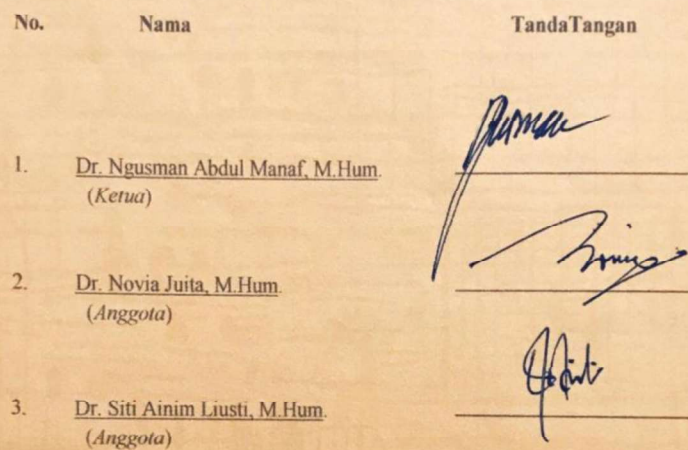 No. Nama TandaTangan
1. Dr. Ngusman Abdul Manaf, M.Hum.
(Ketua)
2. Dr. Novia Juita, M.Hum.
(Anggota)
3. Dr. Siti Ainim Liusti, M.Hum.
(Anggota)